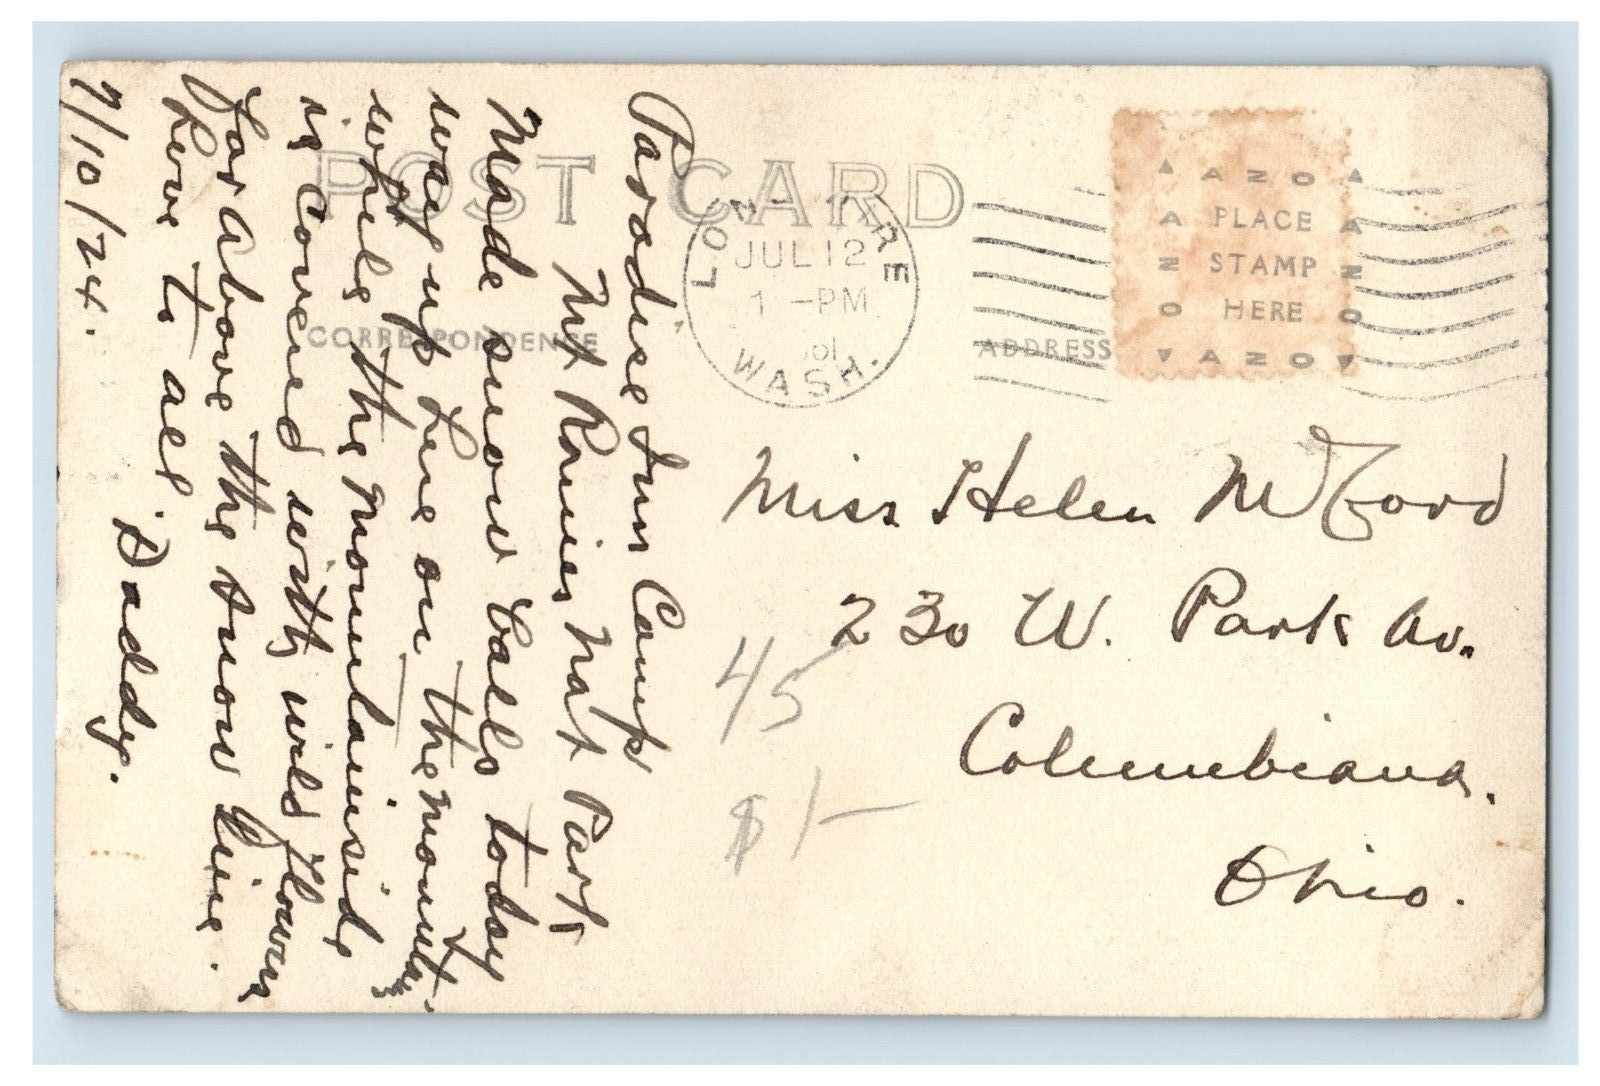 POST CARD
CORRESPONDENCE
ADDRESS
JUL 12
1 -PM
WASH.
AZO
PLACE
STAMP
HERE
AZO
Paradise Inn Camp
Mt Ranier Nat Park
Made snow balls today
way up here on the mountain
while the mountainside
is covered with wild flowers
far above the snow line.
Love to all
Daddy.
7/10/24.
Miss Helen
230 W. Park Av.
Columbiana.
Ohio.
45
$1-